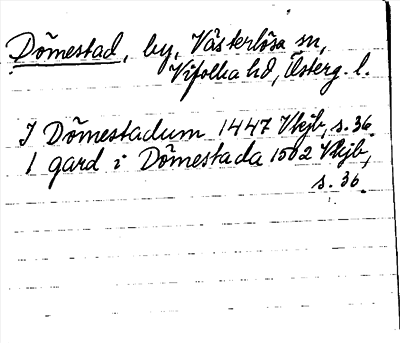 Dömestad, by, Västerlösa sn,
Vifolka hd, Österg. l.
I Dömestadum 1447 Vkjb, s. 36.
1 gard i Dömestada 1502 Vkjb,
s. 36.